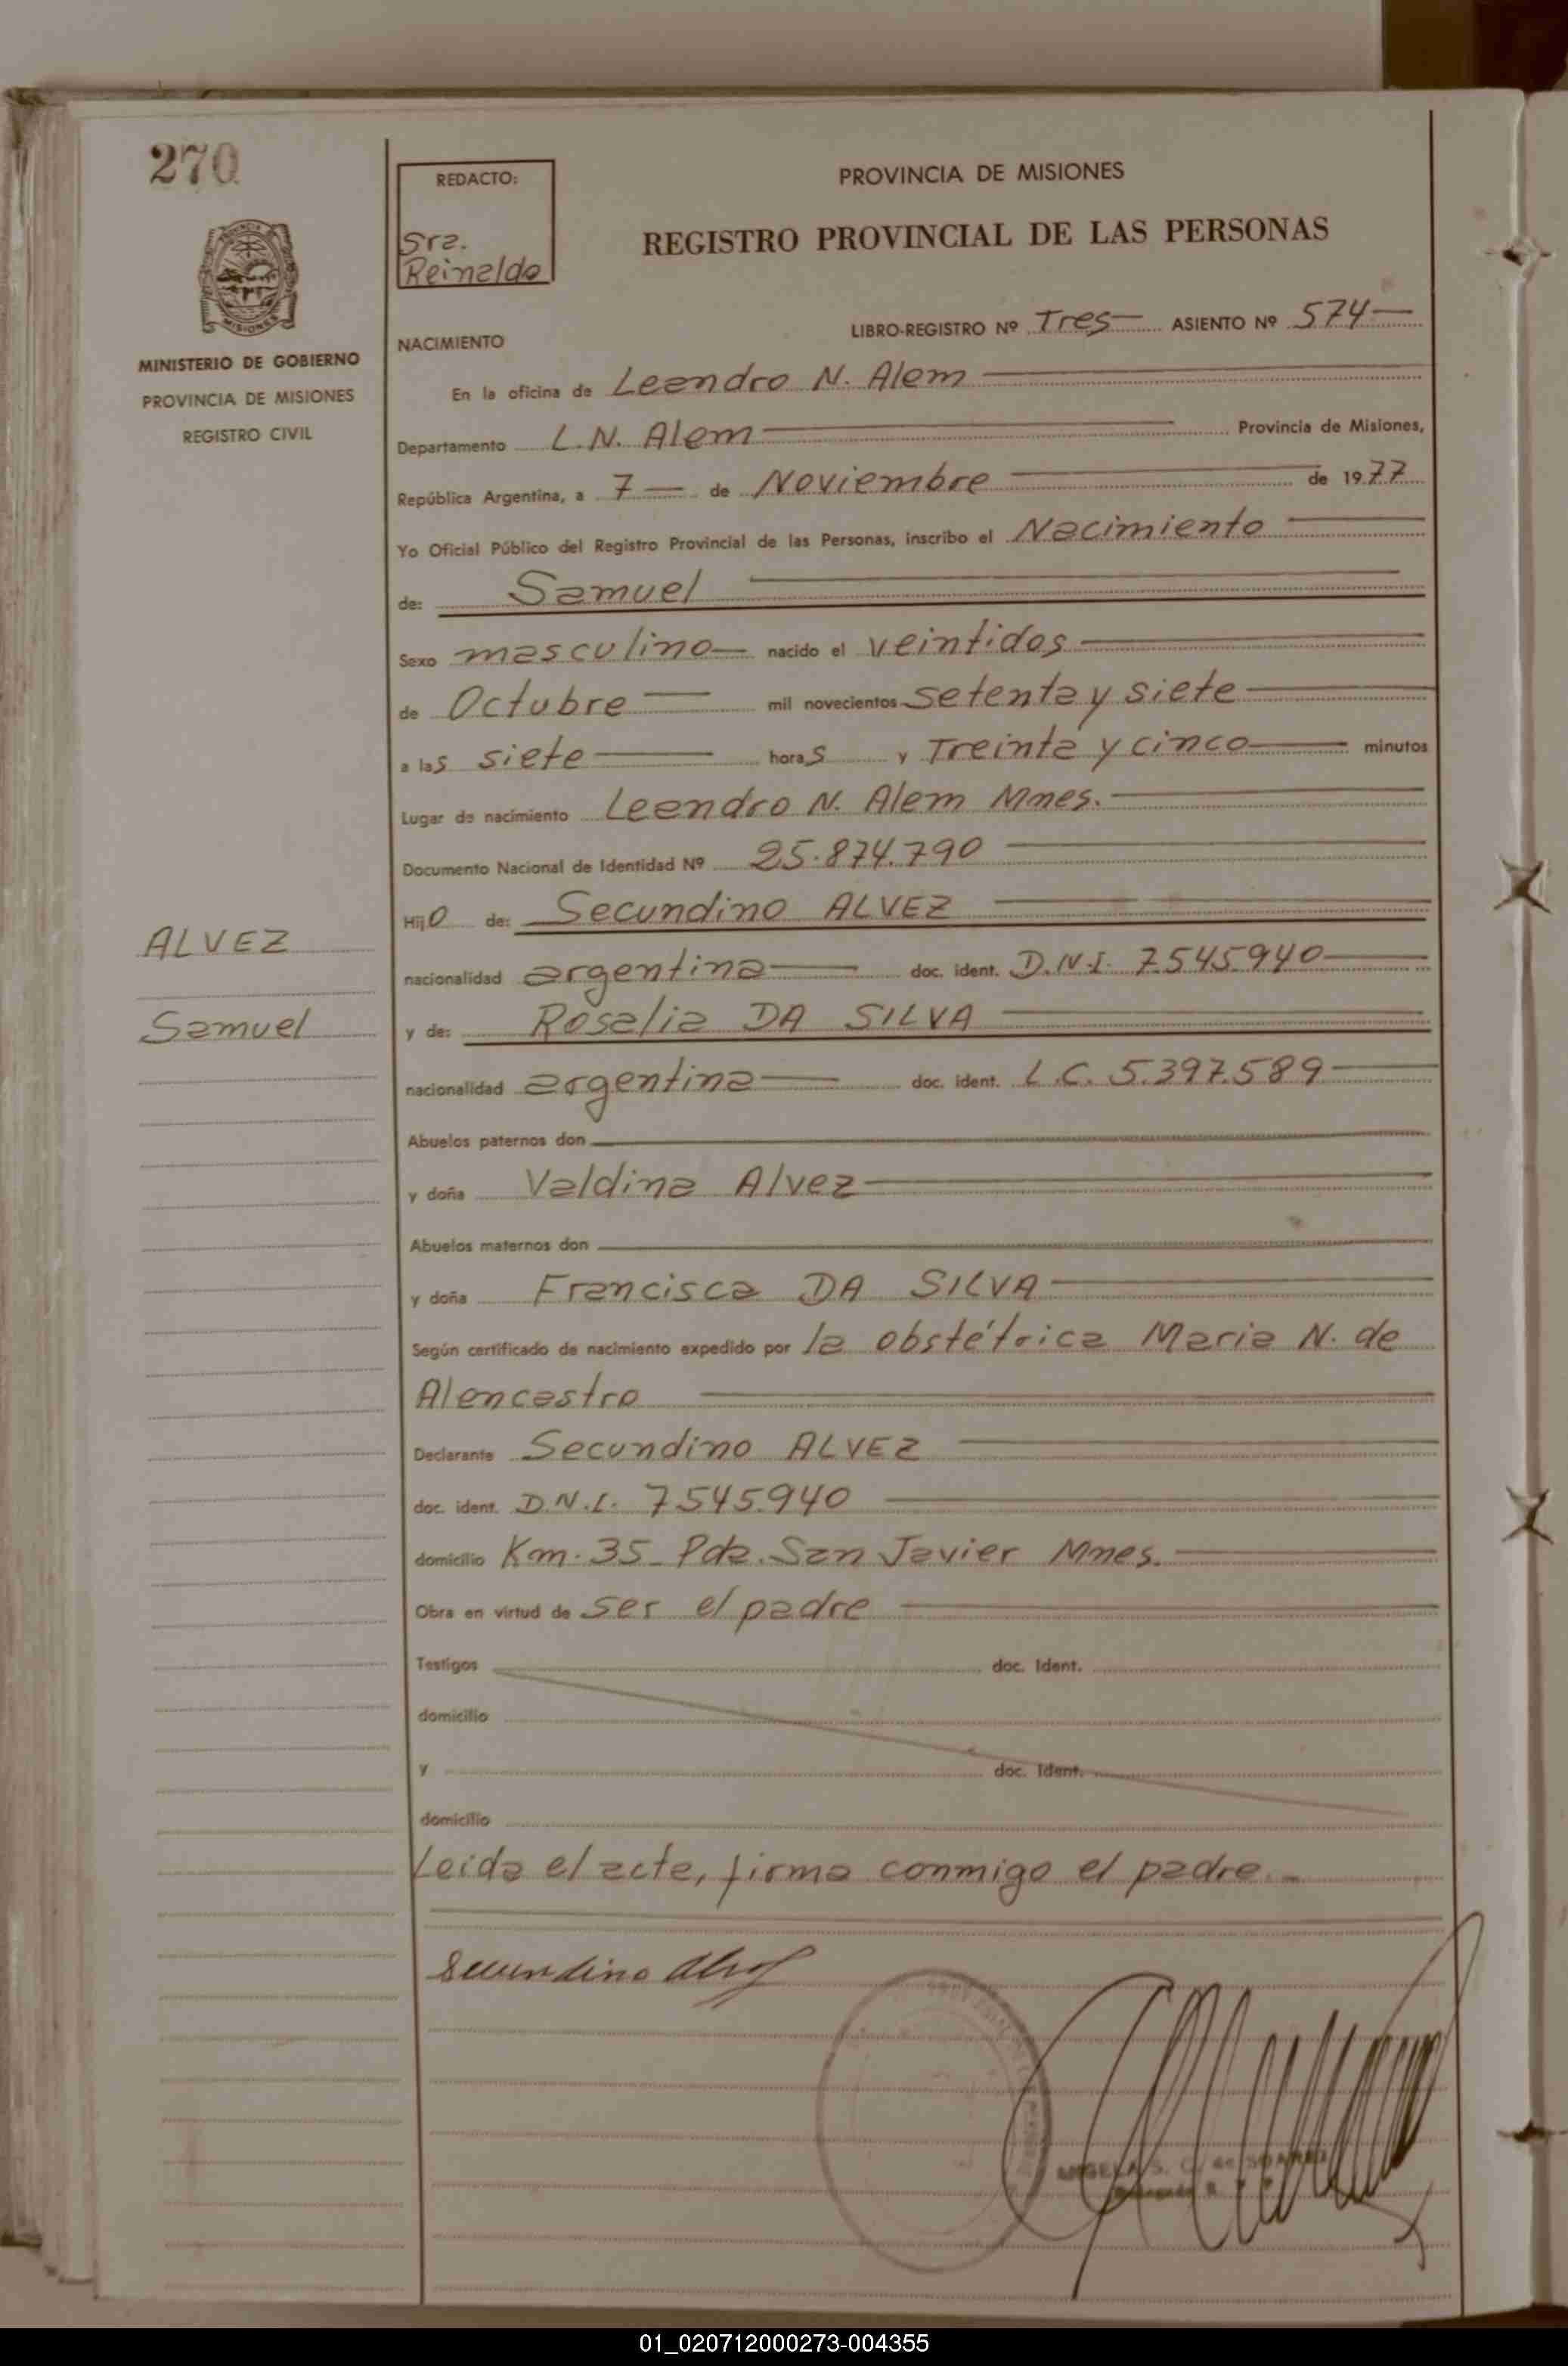 270
REDACTO:
Sra.
Reinaldo
PROVINCIA DE MISIONES
REGISTRO PROVINCIAL DE LAS PERSONAS
MISIONES
MINISTERIO DE GOBIERNO
PROVINCIA DE MISIONES
REGISTRO CIVIL
LIBRO-REGISTRO Nº Tres ASIENTO Nº 574
NACIMIENTO
En la oficina de Leandro N. Alem
Departamento L.N. Alem Provincia de Misiones,
República Argentina, a 7 de Noviembre de 1977
Yo Oficial Público del Registro Provincial de las Personas, inscribo el Nacimiento
de: Samuel
Sexo masculino nacido el veintidos
de Octubre mil novecientos setenta y siete
a las siete horas y Treinta y cinco minutos
Lugar de nacimiento Leandro N. Alem Mnes.
Documento Nacional de Identidad Nº 25.874.790
Hijo de: Secundino ALVEZ
ALVEZ
nacionalidad argentina doc. ident. D.N.I. 7.545.940
Samuel
y de: Rosalia DA SILVA
nacionalidad argentina doc. ident. L.C. 5.397.589
Abuelos paternos don
y doña Valdina Alvez
Abuelos maternos don
y doña Francisca DA SILVA
Según certificado de nacimiento expedido por la obstétrica Maria N. de
Alencastro
Declarante Secundino ALVEZ
doc. ident. D.N.I. 7.545.940
domicilio Km. 35_ Pda. San Javier Mnes.
Obra en virtud de ser el padre
Testigos doc. Ident.
domicilio
y doc. Ident.
domicilio
Leida el acta, firma conmigo el padre._
Secundino
01_020712000273-004355